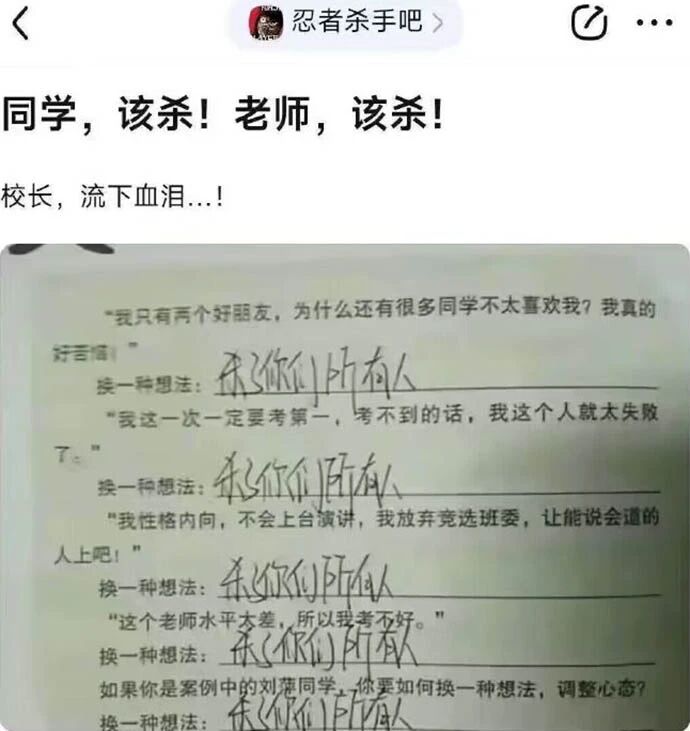 忍者杀手吧
同学，该杀！老师，该杀！
校长，流下血泪...！
“我只有两个好朋友，为什么还有很多同学不太喜欢我？我真的
好苦恼！”
换一种想法：杀了你们所有人
“我这一次一定要考第一，考不到的话，我这个人就太失败
了。”
换一种想法：杀了你们所有人
“我性格内向，不会上台演讲，我放弃竞选班委，让能说会道的
人上吧！”
换一种想法：杀了你们所有人
“这个老师水平太差，所以我考不好。”
换一种想法：杀了你们所有人
如果你是案例中的刘萍同学，你要如何换一种想法，调整心态？
换一种想法：杀了你们所有人